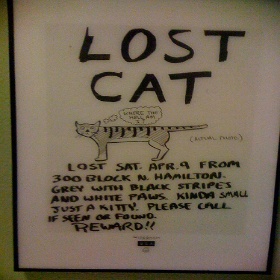 LOST
CAT
WHERE THE HELL AM I?
(ACTUAL PHOTO)
LOST SAT. APR. 9 FROM
300 BLOCK N. HAMILTON.
GREY WITH BLACK STRIPES
AND WHITE PAWS. KINDA SMALL
JUST A KITTY. PLEASE CALL
IF SEEN OR FOUND.
REWARD!!